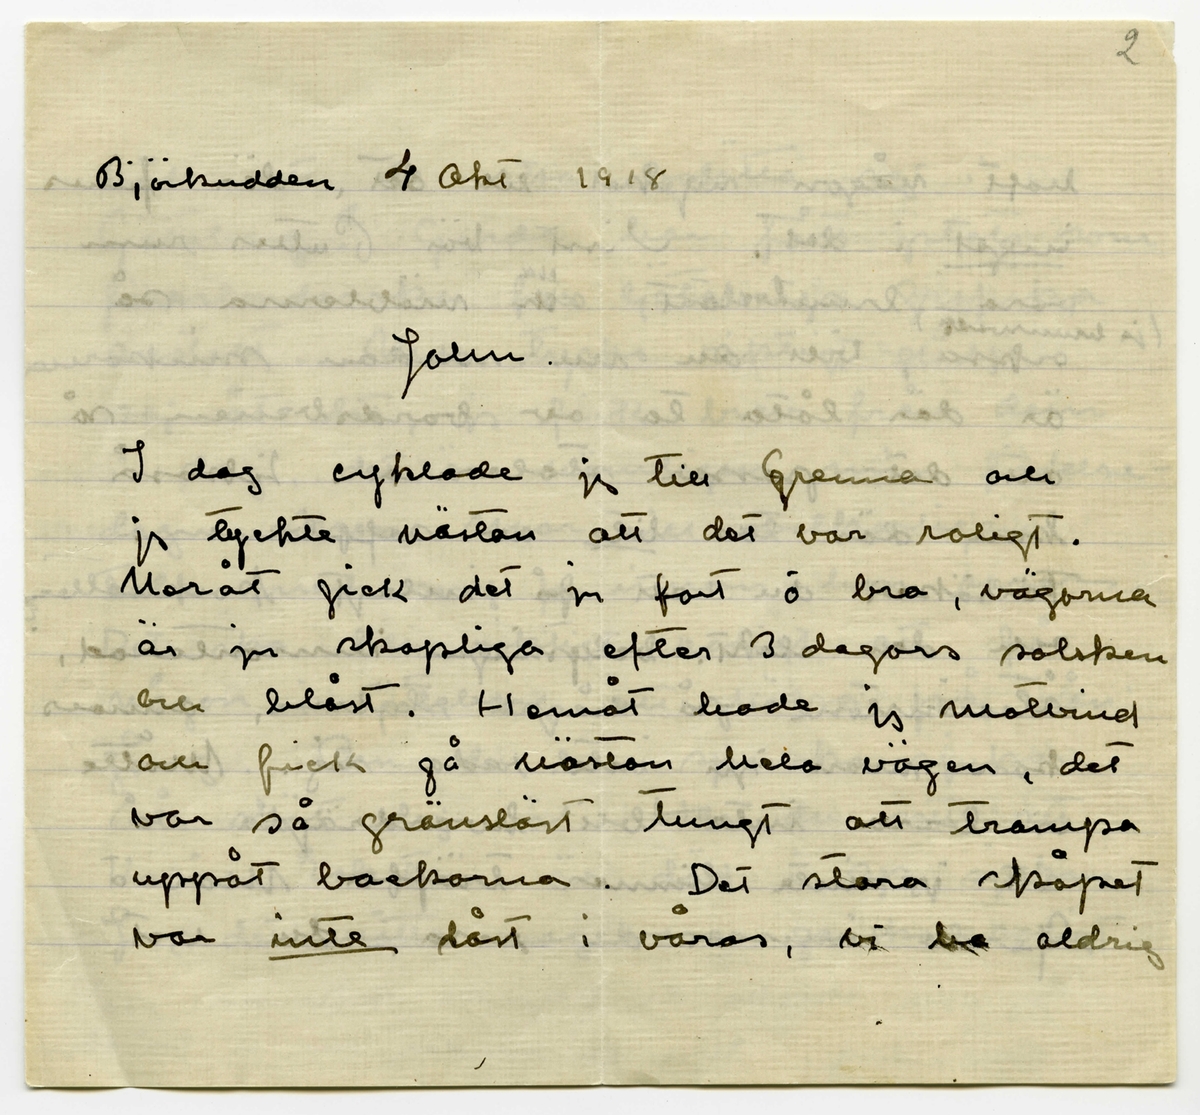 2
Björkudden 4 Okt 1918
John.
I dag cyklade jg till Grenna och
jg tyckte nästan att det var roligt.
Noråt gick det ju fort å bra, vägorna
är ju skapliga efter 3 dagars solsken
och blåst. Hemåt hade jg motvind
och fick gå nästan hela vägen, det
var så gränslöst tungt att trampa
uppåt backarna. Det stora skåpet
var inte låst i våras, vi ha aldrig